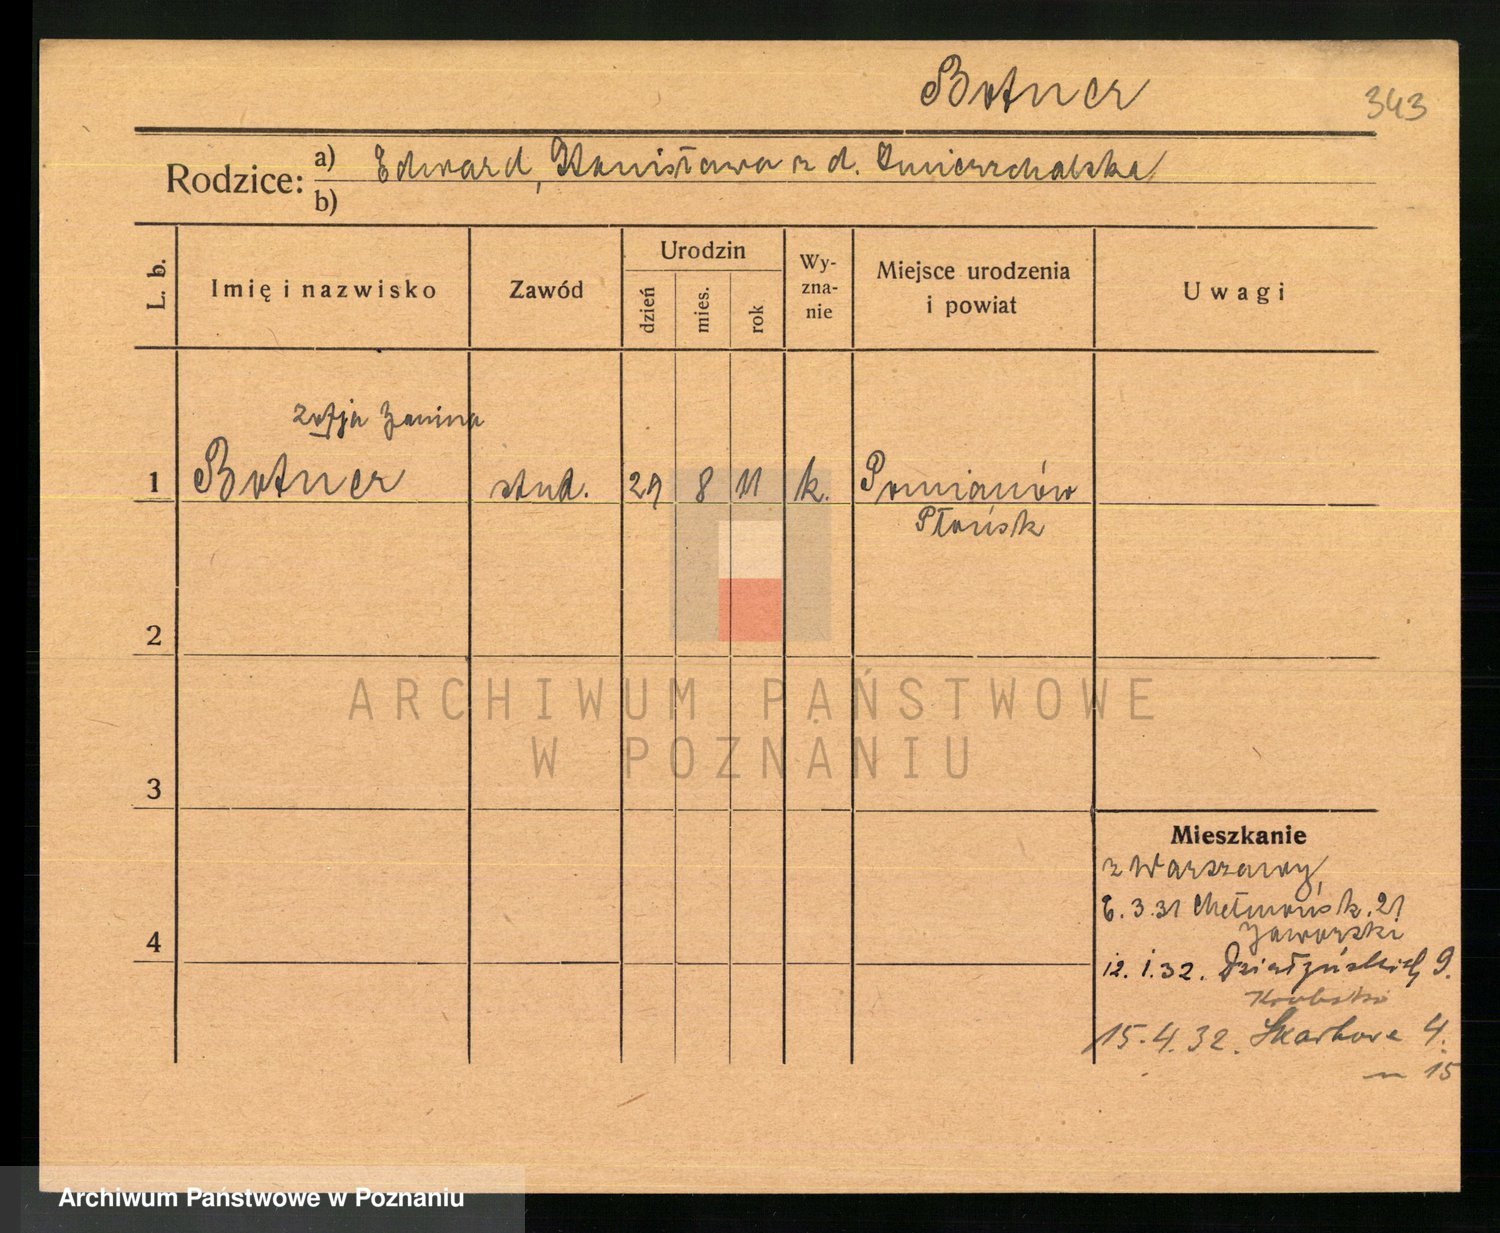 Botner
343
Rodzice: a) Edward, Stanisława z d. Zmierzchalska
b)
L. b.
Imię i nazwisko
Zawód
Urodzin
dzień
mies.
rok
Wy-
zna-
nie
Miejsce urodzenia
i powiat
Uwagi
Zofja Janina
1 Botner stud. 29 8 11 k. Pomianów
Płońsk
2
3
4
Mieszkanie
z Warszawy,
6.3.31 Chełmońsk. 21
Jaworski
12.1.32. Działyńskich 9.
15.4.32. Skarbowa 4.
m 15
ARCHIWUM PAŃSTWOWE
W POZNANIU
Archiwum Państwowe w Poznaniu